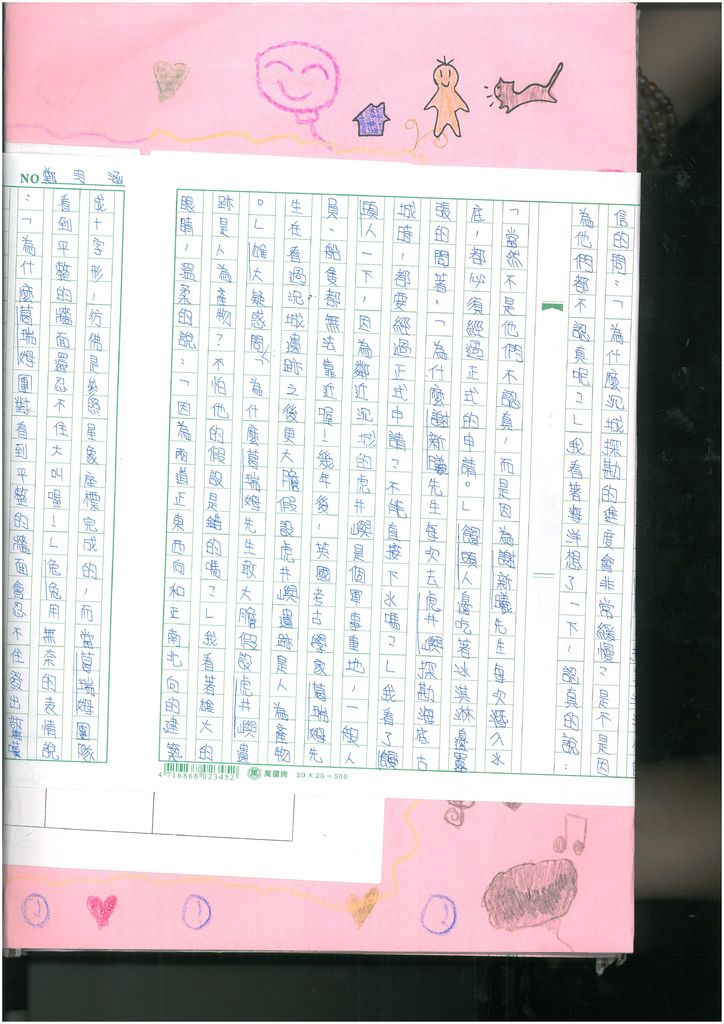 信的問：「為什麼沉城探勘的進度會非常緩慢？是不是因
為他們都不認真呢？」我看著海洋想了一下，認真的說：
「當然不是他們不認真，而是因為謝新曦先生每次潛入水
底，都必須經過正式的申請。」饅頭人邊吃著冰淇淋邊囂
張的問著：「為什麼謝新曦先生每次去虎井嶼探勘海底古
城時，都要經過正式申請？不能直接下水嗎？」我看了饅
頭人一下，因為鄰近沉城的虎井嶼是個軍事重地，一般人
員、船隻都無法靠近喔！幾年後，英國考古學家葛瑞姆先
生在看過沉城遺跡之後更大膽假設虎井嶼遺跡是人為產物
。」雄大疑惑問：「為什麼葛瑞姆先生敢大膽假設虎井嶼遺
跡是人為產物？不怕他的假設是錯的嗎？」我看著雄大的
眼睛，溫柔的說：「因為兩道正東西向和正南北向的建築
4 716868 023452
萬國牌 20×25=500
NO 鄭 涵
成十字形，彷彿是依照星象座標完成的，而當葛瑞姆團隊
看到平整的牆面還忍不住大叫喔！」兔兔用無奈的表情說
：「為什麼葛瑞姆團隊看到平整的牆面會忍不住發出